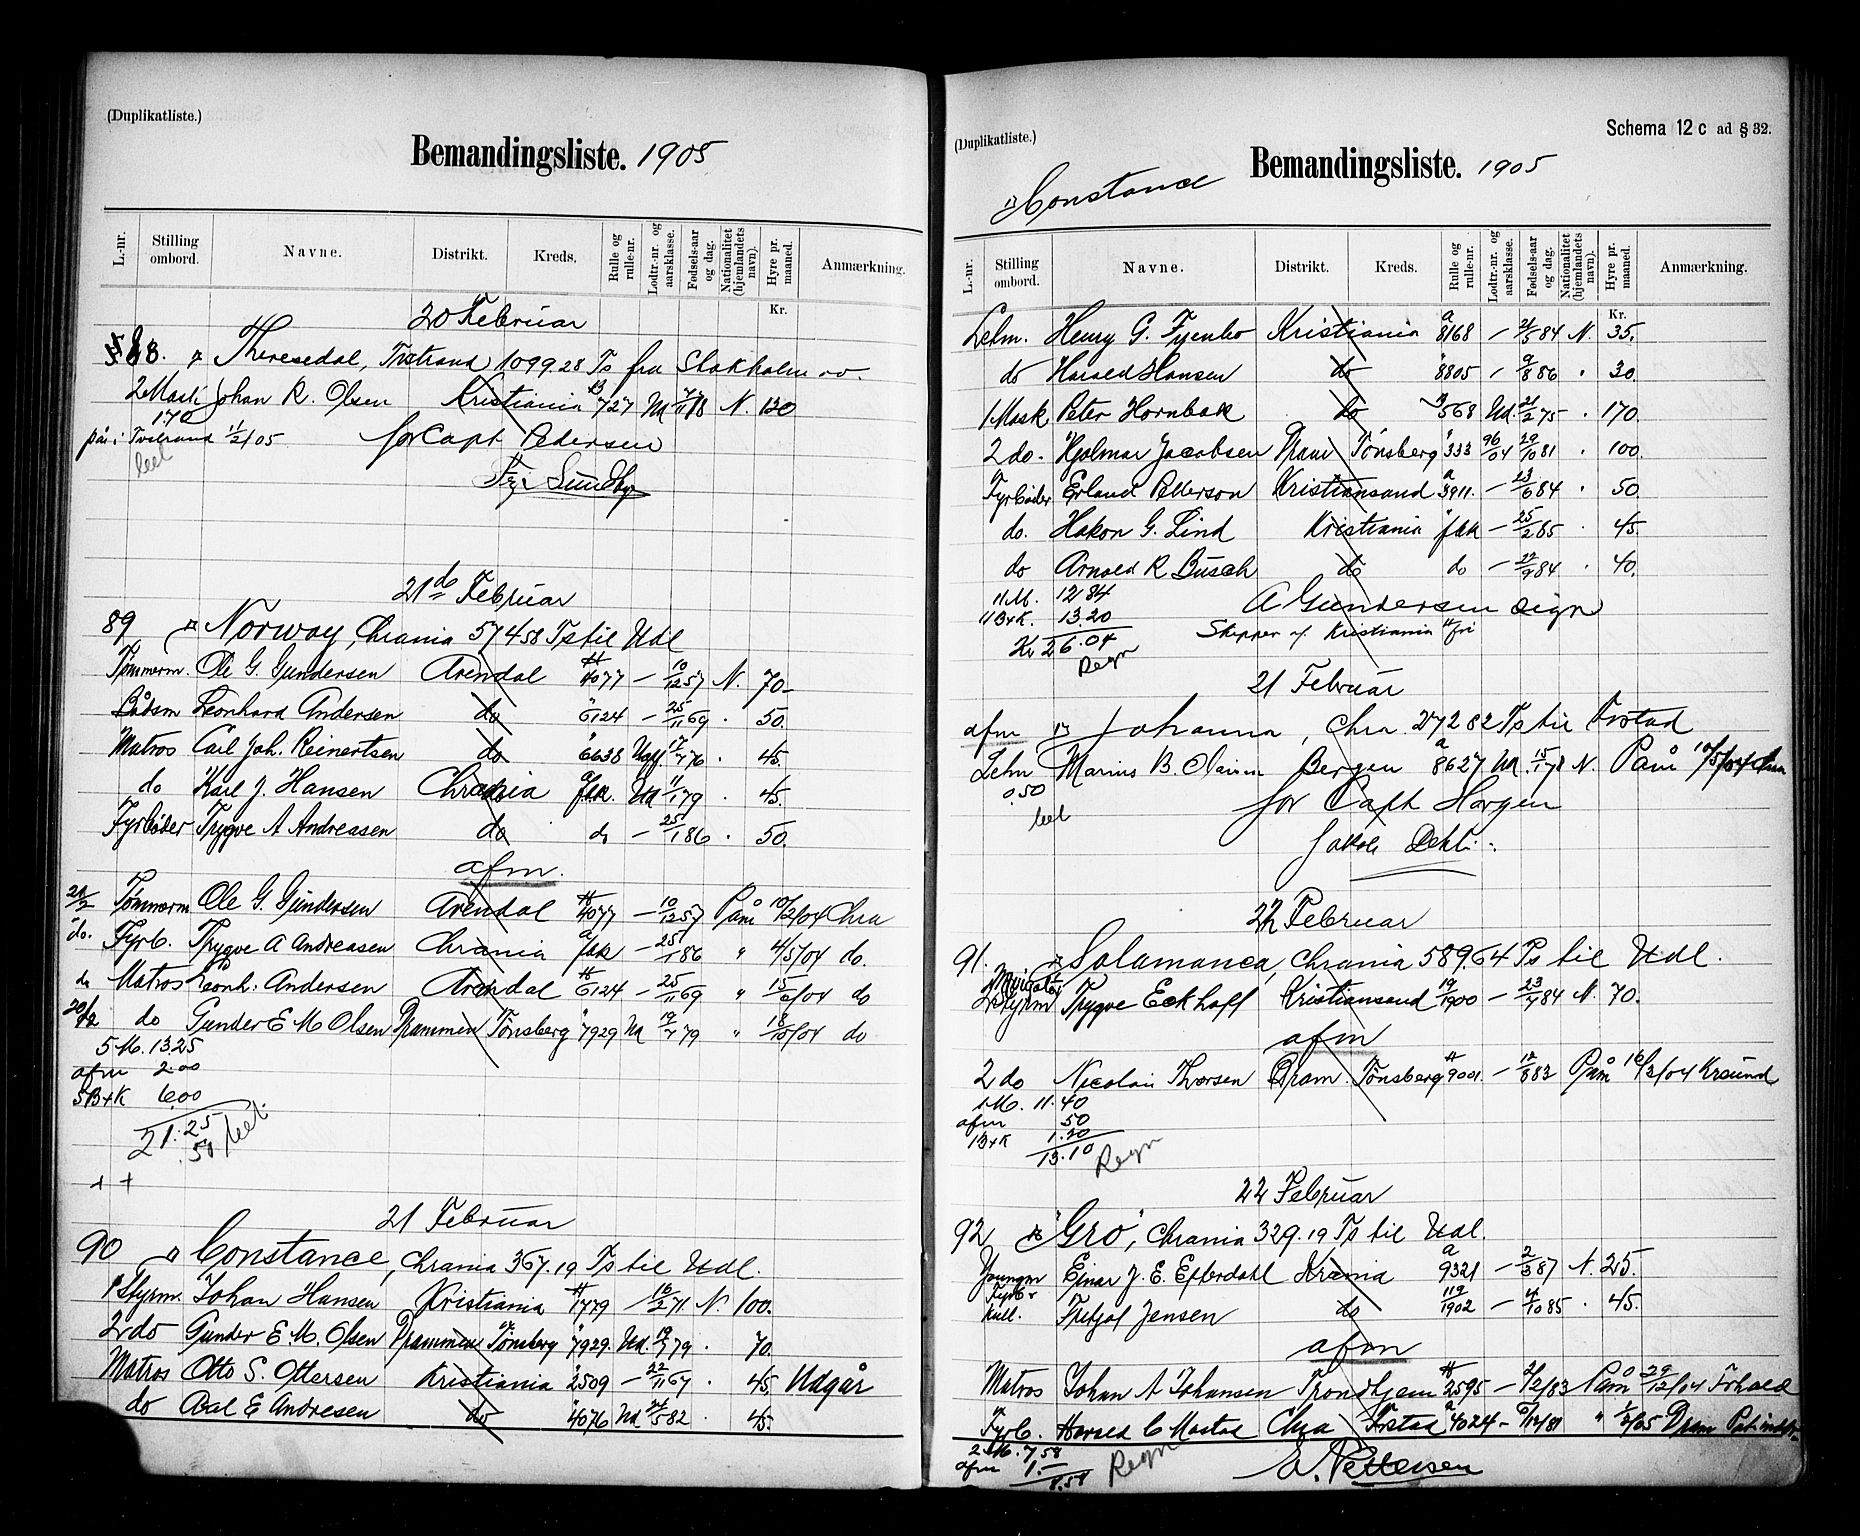 (Duplikatliste.)
Bemandingsliste. 1905
L.-nr. Stilling ombord. Navne. Distrikt. Kreds. Rulle og rulle-nr. Lodtr.-nr. og aarsklasse. Fødsels-aar og dag. Nationalitet (hjemlandets navn). Hyre pr. maaned. Anmærkning.
Kr.
20 Februar
88. Theresedal, Tvetstrand 1099.28 Ts fra Stokholm
2 Mask Johan R. Olsen Kristiania 727 Ud N. 120
1.70
på i Tvetstrand 11/2/05 for Capt Pedersen
21de Februar
89 Norway, Chrania 574.58 Ts til Udl
Tømmerm. Ole G. Gundersen Arendal 4077 — 10/12 57 N. 70-
Bådsm Leonhard Andersen do 6124 — 25/11 69 . 50.
Matros Carl Joh. Reinertsen do 6638 76 . 45.
do Karl J. Hansen Chrania fak. Ud 11/1 79 . 45.
Fyrbøder Trygve A Andreasen do do — 25/1 86 . 50.
afm.
21/2 Tømmerm Ole G. Gundersen Arendal 4077 — 10/12 57 Påm 10/2/04 Chra
do. Fyrb. Trygve A Andreasen Chrania fak — 25/1 86 " 4/5/04 do.
do Matros Leonh. Andersen Arendal 6124 — 25/11 69 " 15/6/04 do
20/2 do Gunder E M Olsen Drammen Tønsberg 7929 Ud 19/7 79 " 18/10/04 do
5 M. 13.25
afm 2.00
5 B+K 6.00
21.25
.50
21 Februar
90 Constance, Chrania 367.19 Ts til Udl.
1 Styrm. Johan Hansen Kristiania 1779 — 16/2 71 N. 100.
2 do Gunder E M. Olsen Drammen Tønsberg 7929. Ud. 19/7 79 . 70.
Matros Otto S. Ottersen Kristiania 2509 — 22/11 67 . 45. Udgår
do Axel E Andresen do 4076 Ud 24/5 82 . 45.
(Duplikatliste.)
Schema 12 c ad § 32.
Bemandingsliste. 1905
Constance
L.-nr. Stilling ombord. Navne. Distrikt. Kreds. Rulle og rulle-nr. Lodtr.-nr. og aarsklasse. Fødsels-aar og dag. Nationalitet (hjemlandets navn). Hyre pr. maaned. Anmærkning.
Kr.
Letm. Henry G. Fyenbo Kristiania a 8168 — 21/5 84 N. 35.
do Harald Hansen do 8805 — 9/8 86 . 30.
1 Mask Peter Hornbak do 568 Ud. 21/2 75 . 170.
2 do. Hjalmar Jacobsen Dram Tønsberg 333 96/04 29/10 81 . 100.
Fyrbøder Erland Pettersen Kristiansand a 3911. — 23/6 84 . 50.
do. Hakon G. Lind Kristiania fak — 25/2 85 . 45.
do Arnold R Busch do do — 22/9 84 . 40.
11 M. 12 84
11 B+K. 13.20
Kr 26.04
Regn
A Gundersen sign
Skipper af Kristiania
21 Februar
afm Johanna, Chra. 272 82 Ts til Frstad
Letm Marius B. Bergen a 8627 Ud. 15/1 N. Påm
0.50
for Capt Horgen
Jakob Dehli
22 Februar
91. Salamanca, Chrania 589.64 Ts til Udl.
2 Styrm Trygve Eckhoff Kristiansand 19/1900 — 23/4 84 N. 70.
afm
2 do Nicolai Thorsen Dram. Tønsberg 9001. — 12/8 83 Påm 16/3/04 Krsund
1 M. 11.40
afm 50
1 B+K 1.20
13.10
Regn
22 Februar
92 "Gro", Chrania 329.19 Ts til Udl.
Youngm Einar J. E. Efterdahl Krania a 9321 — 2/3 87 N. 25.
Fyrb. Kull. Fritjof Jensen do 112/1902 — 4/10 85 . 45.
afm
Matros Johan A Johansen Trondhjem 2595 — 21/2/83 Påm 29/12/04 Frhald
Fyrb. Harald C Mostad Chra Frstad a 4024 — 6/12/81 " 1/2/05 Dram
2 M. 7.58
afm 1.—
8.58
Regn
A. Pettersen